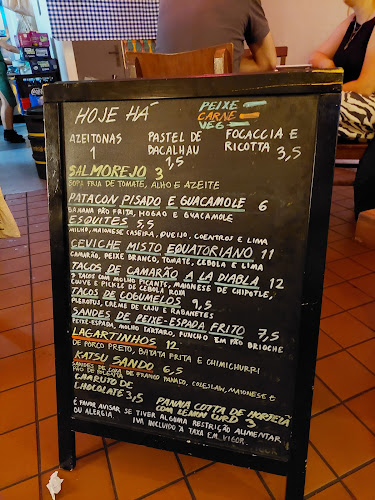 HOJE HÁ
PEIXE
CARNE
VEG
AZEITONAS
1
PASTEL DE
BACALHAU
1,5
FOCACCIA E
RICOTTA 3,5
SALMOREJO 3
SOPA FRIA DE TOMATE, ALHO E AZEITE
PATACON PISADO E GUACAMOLE 6
BANANA PÃO FRITA, HOGAO E GUACAMOLE
ESQUITES 5,5
MILHO, MAIONESE CASEIRA, QUEIJO, COENTROS E LIMA
CEVICHE MISTO EQUATORIANO 11
CAMARÃO, PEIXE BRANCO, TOMATE, CEBOLA E LIMA
TACOS DE CAMARÃO A LA DIABLA 12
TACOS COM MOLHO PICANTE, MAIONESE DE CHIPOTLE,
COUVE E PICKLE DE CEBOLA ROXA
TACOS DE COGUMELOS 9,5
PLEROTUS, CREME DE CAJU E RABANETES
SANDES DE PEIXE-ESPADA FRITO 7,5
PEIXE-ESPADA, MOLHO TARTARO, FUNCHO EM PÃO BRIOCHE
LAGARTINHOS 12
DE PORCO PRETO, BATATA FRITA E CHIMICHURRI
KATSU SANDO 6,5
SANDES DE FRANGO PANADO, COLESLAW, MAIONESE E
CHARUTO DE
CHOCOLATE 3,5
PANNA COTTA DE HORTELÃ
COM LEMON CURD 3
É FAVOR AVISAR SE TIVER ALGUMA RESTRIÇÃO ALIMENTAR
OU ALERGIA. IVA INCLUIDO À TAXA EM VIGOR.